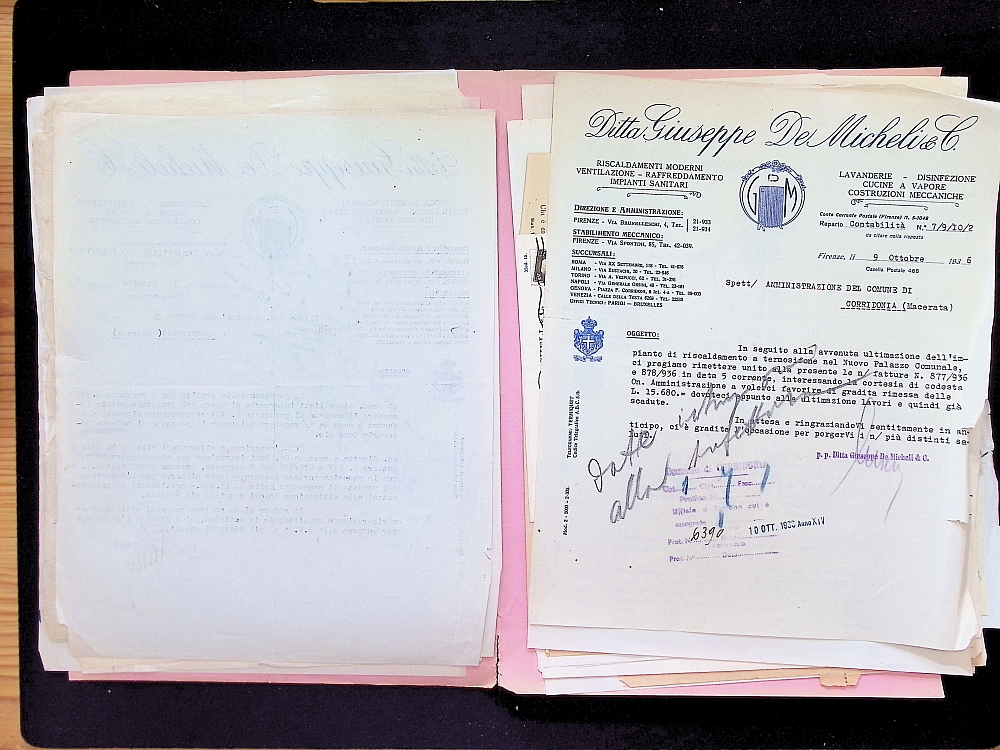 Ditta Giuseppe De Micheli & C.
RISCALDAMENTI MODERNI
VENTILAZIONE - RAFFREDDAMENTO
IMPIANTI SANITARI
G D M
LAVANDERIE - DISINFEZIONE
CUCINE A VAPORE
COSTRUZIONI MECCANICHE
DIREZIONE E AMMINISTRAZIONE:
FIRENZE - VIA BRUNELLESCHI, 4, TEL. 21-933
21-934
STABILIMENTO MECCANICO:
FIRENZE - VIA SPONTINI, 85, TEL. 42-039.
SUCCURSALI:
ROMA - VIA XX SETTEMBRE,
MILANO - VIA EUSTACHI,
TORINO - VIA A. VESPUCCI,
NAPOLI - VIA GENERALE ORSINI,
GENOVA - PIAZZA F. CORRIDONI,
VENEZIA - CALLE DELLA TESTA
UFFICI TECNICI: PARIGI - BRUXELLES
Conto Corrente Postale (Firenze) N. 5-1048
Reparto Contabilità N.° 7/9/10/2
da citare nella risposta
Firenze, li 9 Ottobre 1936
Casella Postale 460
Spett/ AMMINISTRAZIONE DEL COMUNE DI
CORRIDONIA (Macerata)
OGGETTO:
In seguito alla avvenuta ultimazione dell'im-
pianto di riscaldamento a termosifone nel Nuovo Palazzo Comunale,
ci pregiamo rimettere unito alla presente le n/ fatture N. 877/936
e 878/936 in data 5 corrente, interessando la cortesia di codesta
On. Amministrazione a volerci favorire di gradita rimessa delle
L. 15.680.= dovuteci appunto alla ultimazione lavori e quindi già
scadute.
In attesa e ringraziandoVi sentitamente in an-
ticipo, ci è gradita l'occasione per porgerVi i n/ più distinti sa-
luti./
p. p. Ditta Giuseppe De Micheli & C.
Telegrammi: TERMIQUET
Mod. 2
Comune di CORRIDONIA
Cat. Clas. Fasc.
1 7 1
6390
10 OTT. 1936 Anno XIV
Prot. N.
Prot. N° Data